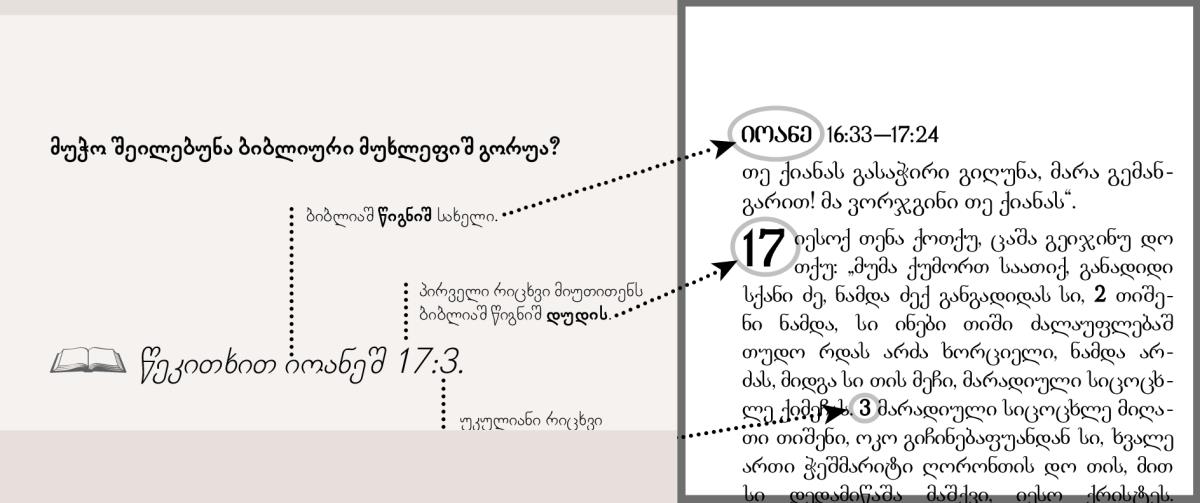 მუჭო შეილებუნა ბიბლიური მუხლეფიშ გორუა?
ბიბლიაშ წიგნიშ სახელი.
პირველი რიცხვი მიუთითენს
ბიბლიაშ წიგნიშ დუდის.
წეკითხით იოანეშ 17:3.
უკულიანი რიცხვი
ᲘᲝᲐᲜᲔ 16:33—17:24
თე ქიანას გასაჭირი გიღუნა, მარა გემან-
გარით! მა ვორჯგინი თე ქიანას“.
17 იესოქ თენა ქოთქუ, ცაშა გეიჯინუ დო
თქუ: „მუმა ქუმორთ საათიქ, განადიდი
სქანი ძე, ნამდა ძექ განგადიდას სი, 2 თიშე-
ნი ნამდა, სი ინები თიში ძალაუფლებაშ
თუდო რდას არძა ხორციელი, ნამდა არ-
ძას, მიდგა სი თის მეჩი, მარადიული სიცოცხ-
ლე ქიმეჩას. 3 მარადიული სიცოცხლე მიღა-
თი თიშენი, ოკო გიჩინებაფუანდან სი, ხვალე
ართი ჭეშმარიტი ღორონთის დო თის, მით
სი დედამიწაშა მაშქვი, იესო ქრისტეს.